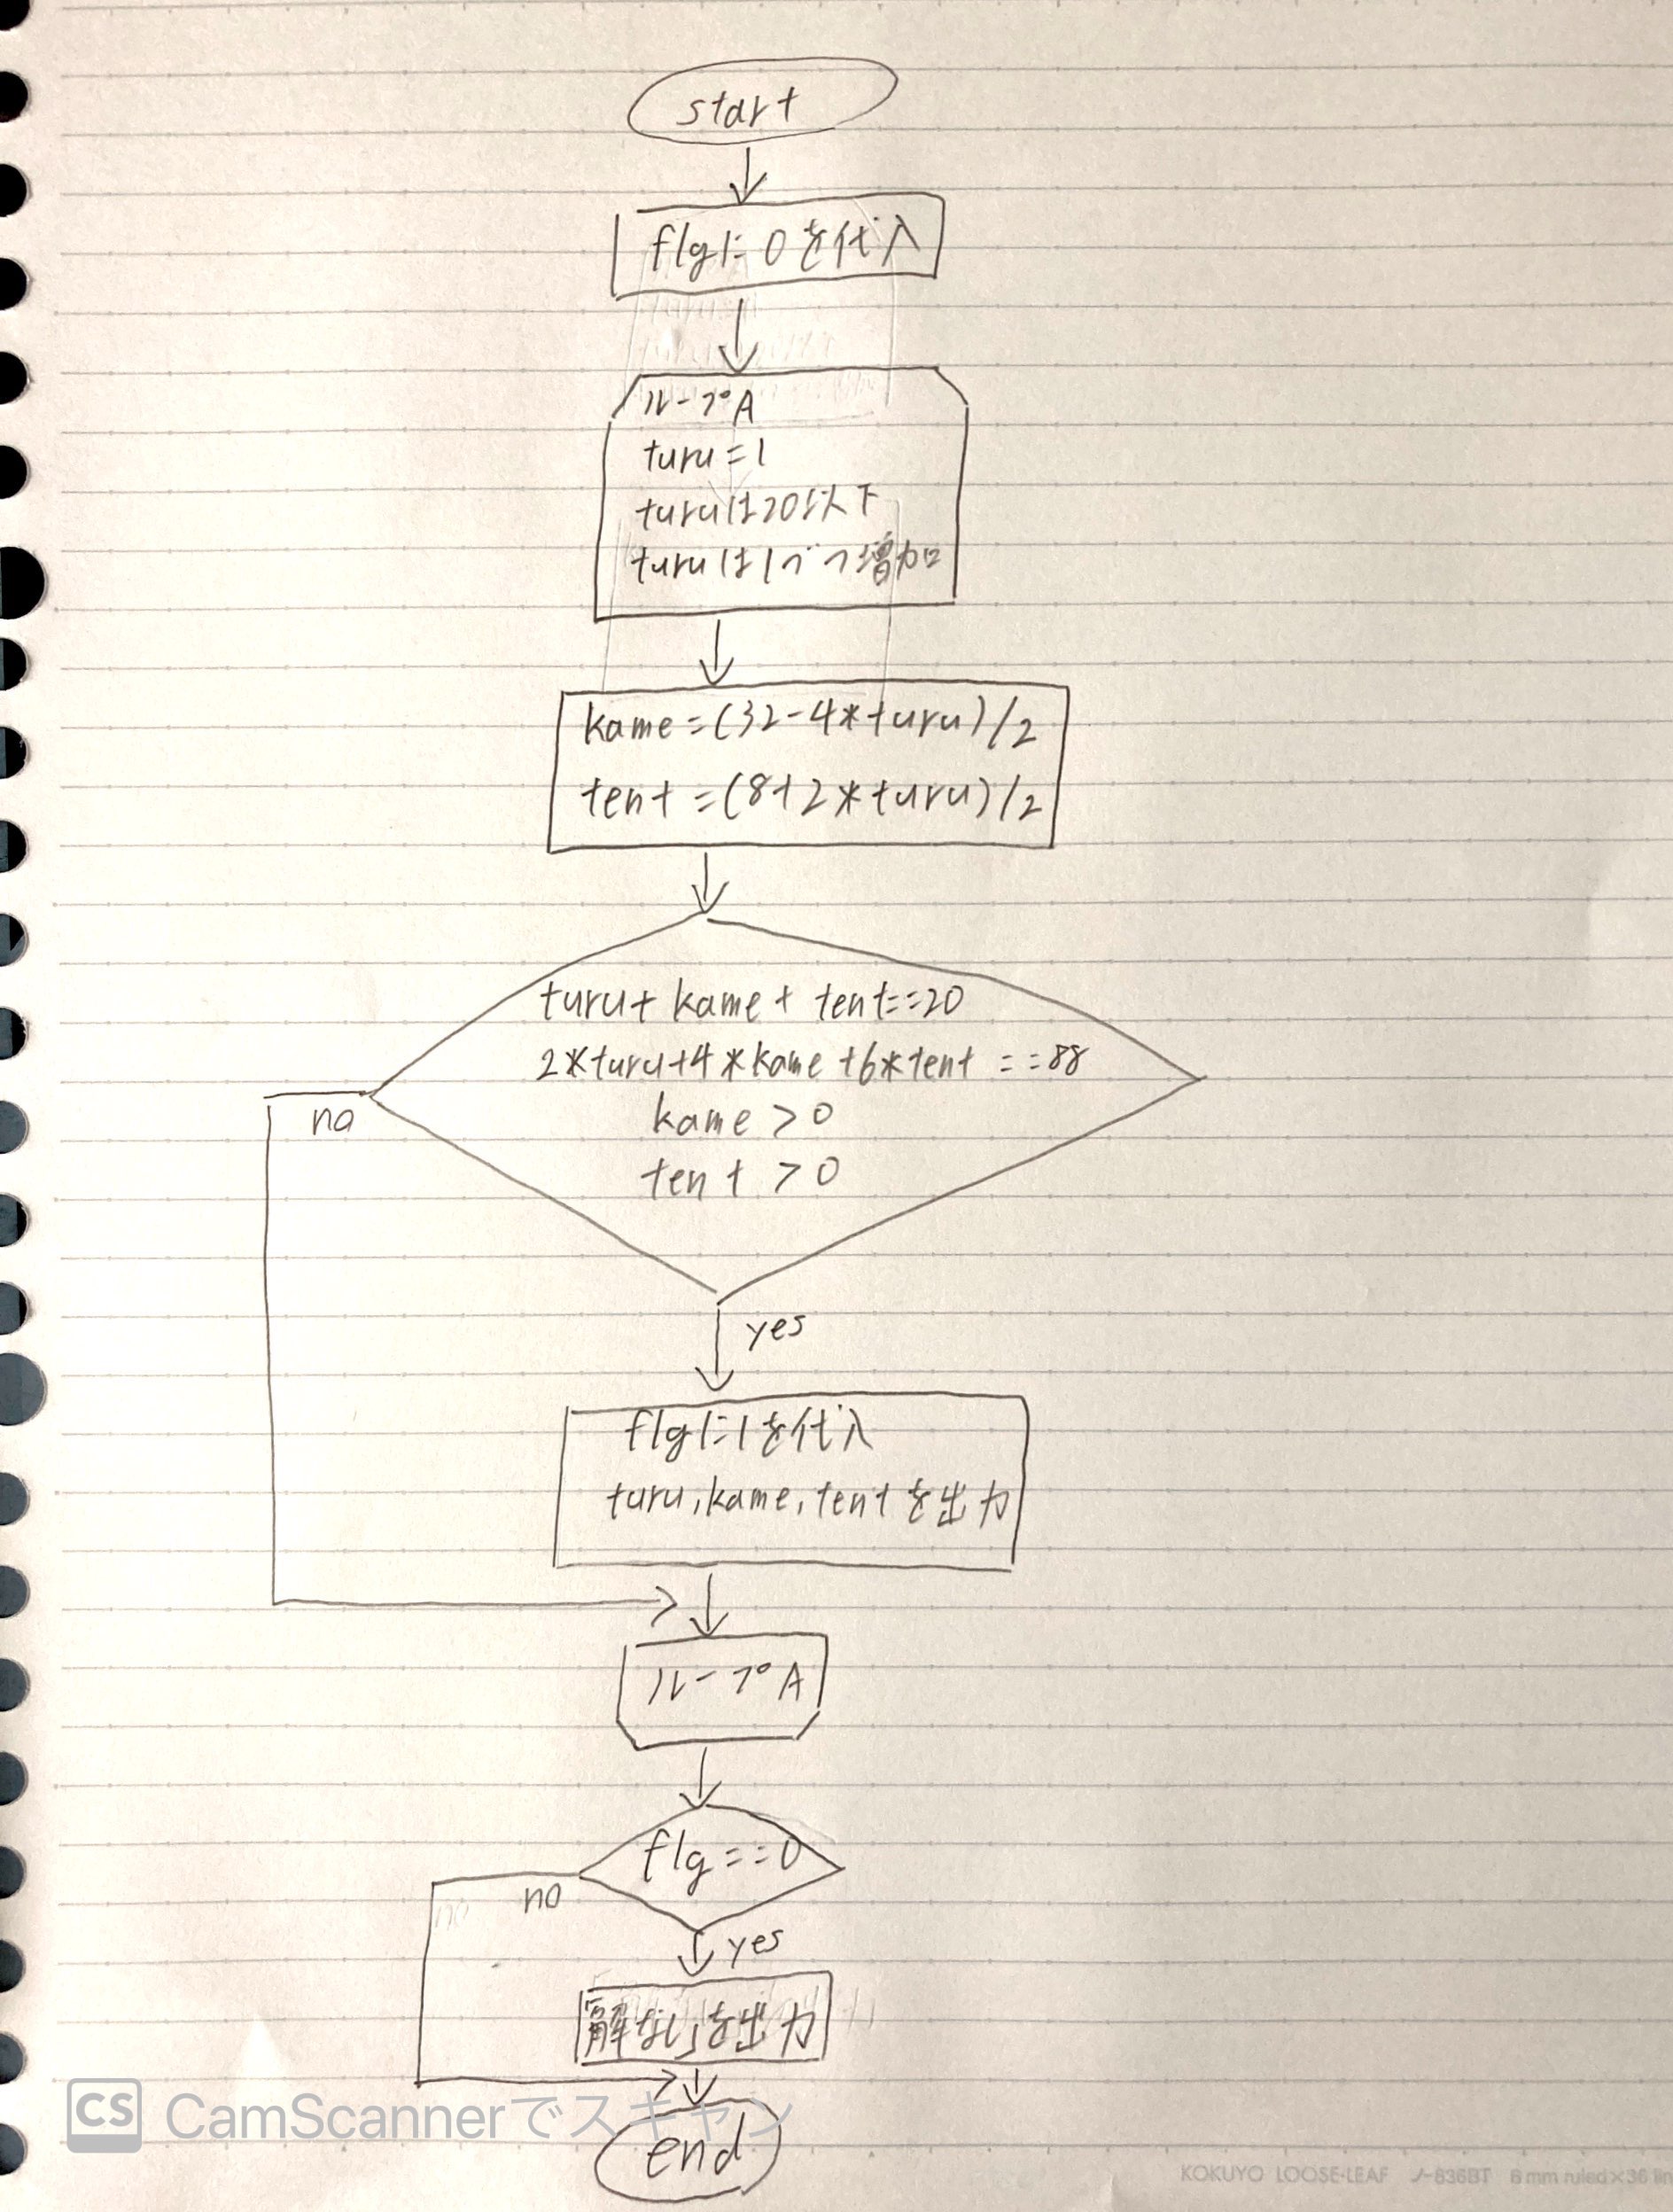 start
flgに0を代入
ループA
turu=1
turuは20以下
turuは1ずつ増加
kame=(32-4*turu)/2
tent=(8+2*turu)/2
turu+kame+tent==20
2*turu+4*kame+6*tent==88
kame>0
tent>0
no
yes
flgに1を代入
turu,kame,tentを出力
ループA
flg==0
no
yes
「解なし」を出力
end
CS CamScannerでスキャン
KOKUYO LOOSE-LEAF ノ-836BT 6 mm ruled×36 lin